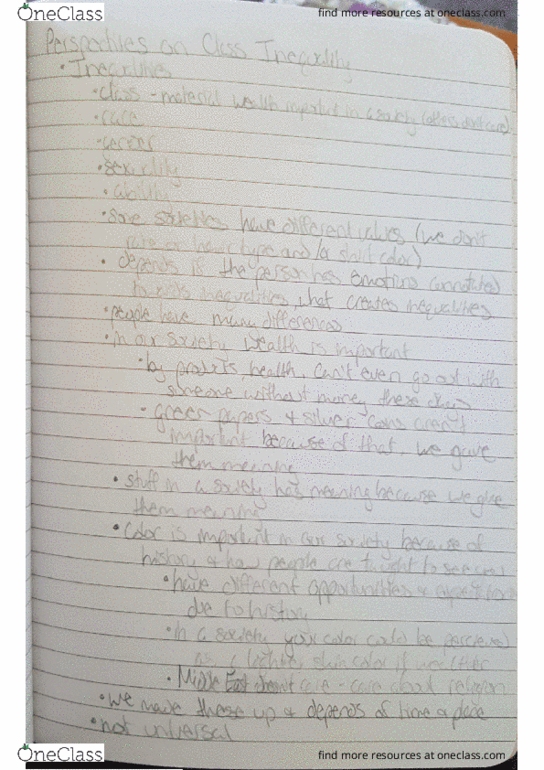 OneClass
find more resources at oneclass.com
Perspectives on Class Inequality
• Inequalities
• class - material wealth important in a society (others don't care)
• race
• gender
• sexuality
• ability
• some societies have different values (we don't
care or hair type and/or shirt color)
• depends if the person has emotions connotated
to inequalities, what creates inequalities
• people have many differences
• in our society wealth is important
• by products, health, can't even go out with
someone without money these days
- green papers + silver coins aren't
important because of that, we gave
them meaning
• stuff in a society has meaning because we give
them meaning
• color is important in our society because of
history + how people are taught to see
• have different opportunities +
due to history
• in a society your color could be perceived
as a lighter skin color if wealthier
• Middle East doesn't care - care about religion
• we made these up + depends of time + place
• not universal
OneClass
find more resources at oneclass.com